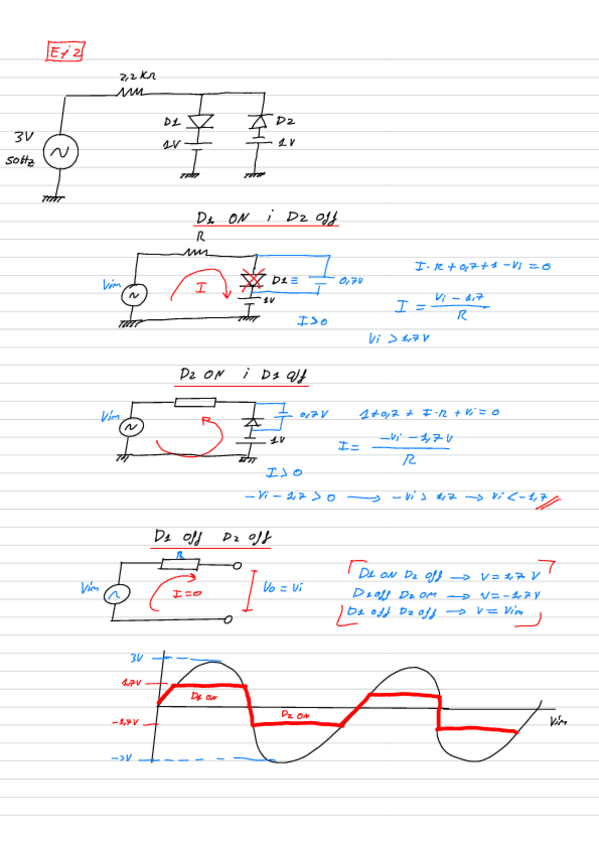 Ej 2
2,2 KΩ
D1 D2
3V 1V 1V
50Hz
D1 ON i D2 off
R
I·R+0,7+1-Vi=0
Vim I D1≡ 0,7V
1V I = Vi-1,7 / R
I>0
Vi > 1,7V
D2 ON i D1 off
Vim 0,7V 1+0,7+I·R+Vi=0
1V I= -Vi-1,7V / R
I>0
-Vi-1,7>0 → -Vi>1,7 → Vi<-1,7
D1 off D2 off
R
Vim I=0 Vo=Vi
D1 ON D2 off → V=1,7V
D1 off D2 ON → V=-1,7V
D1 off D2 off → V=Vim
3V
1,7V
D1 ON
D2 ON
-1,7V Vim
-3V